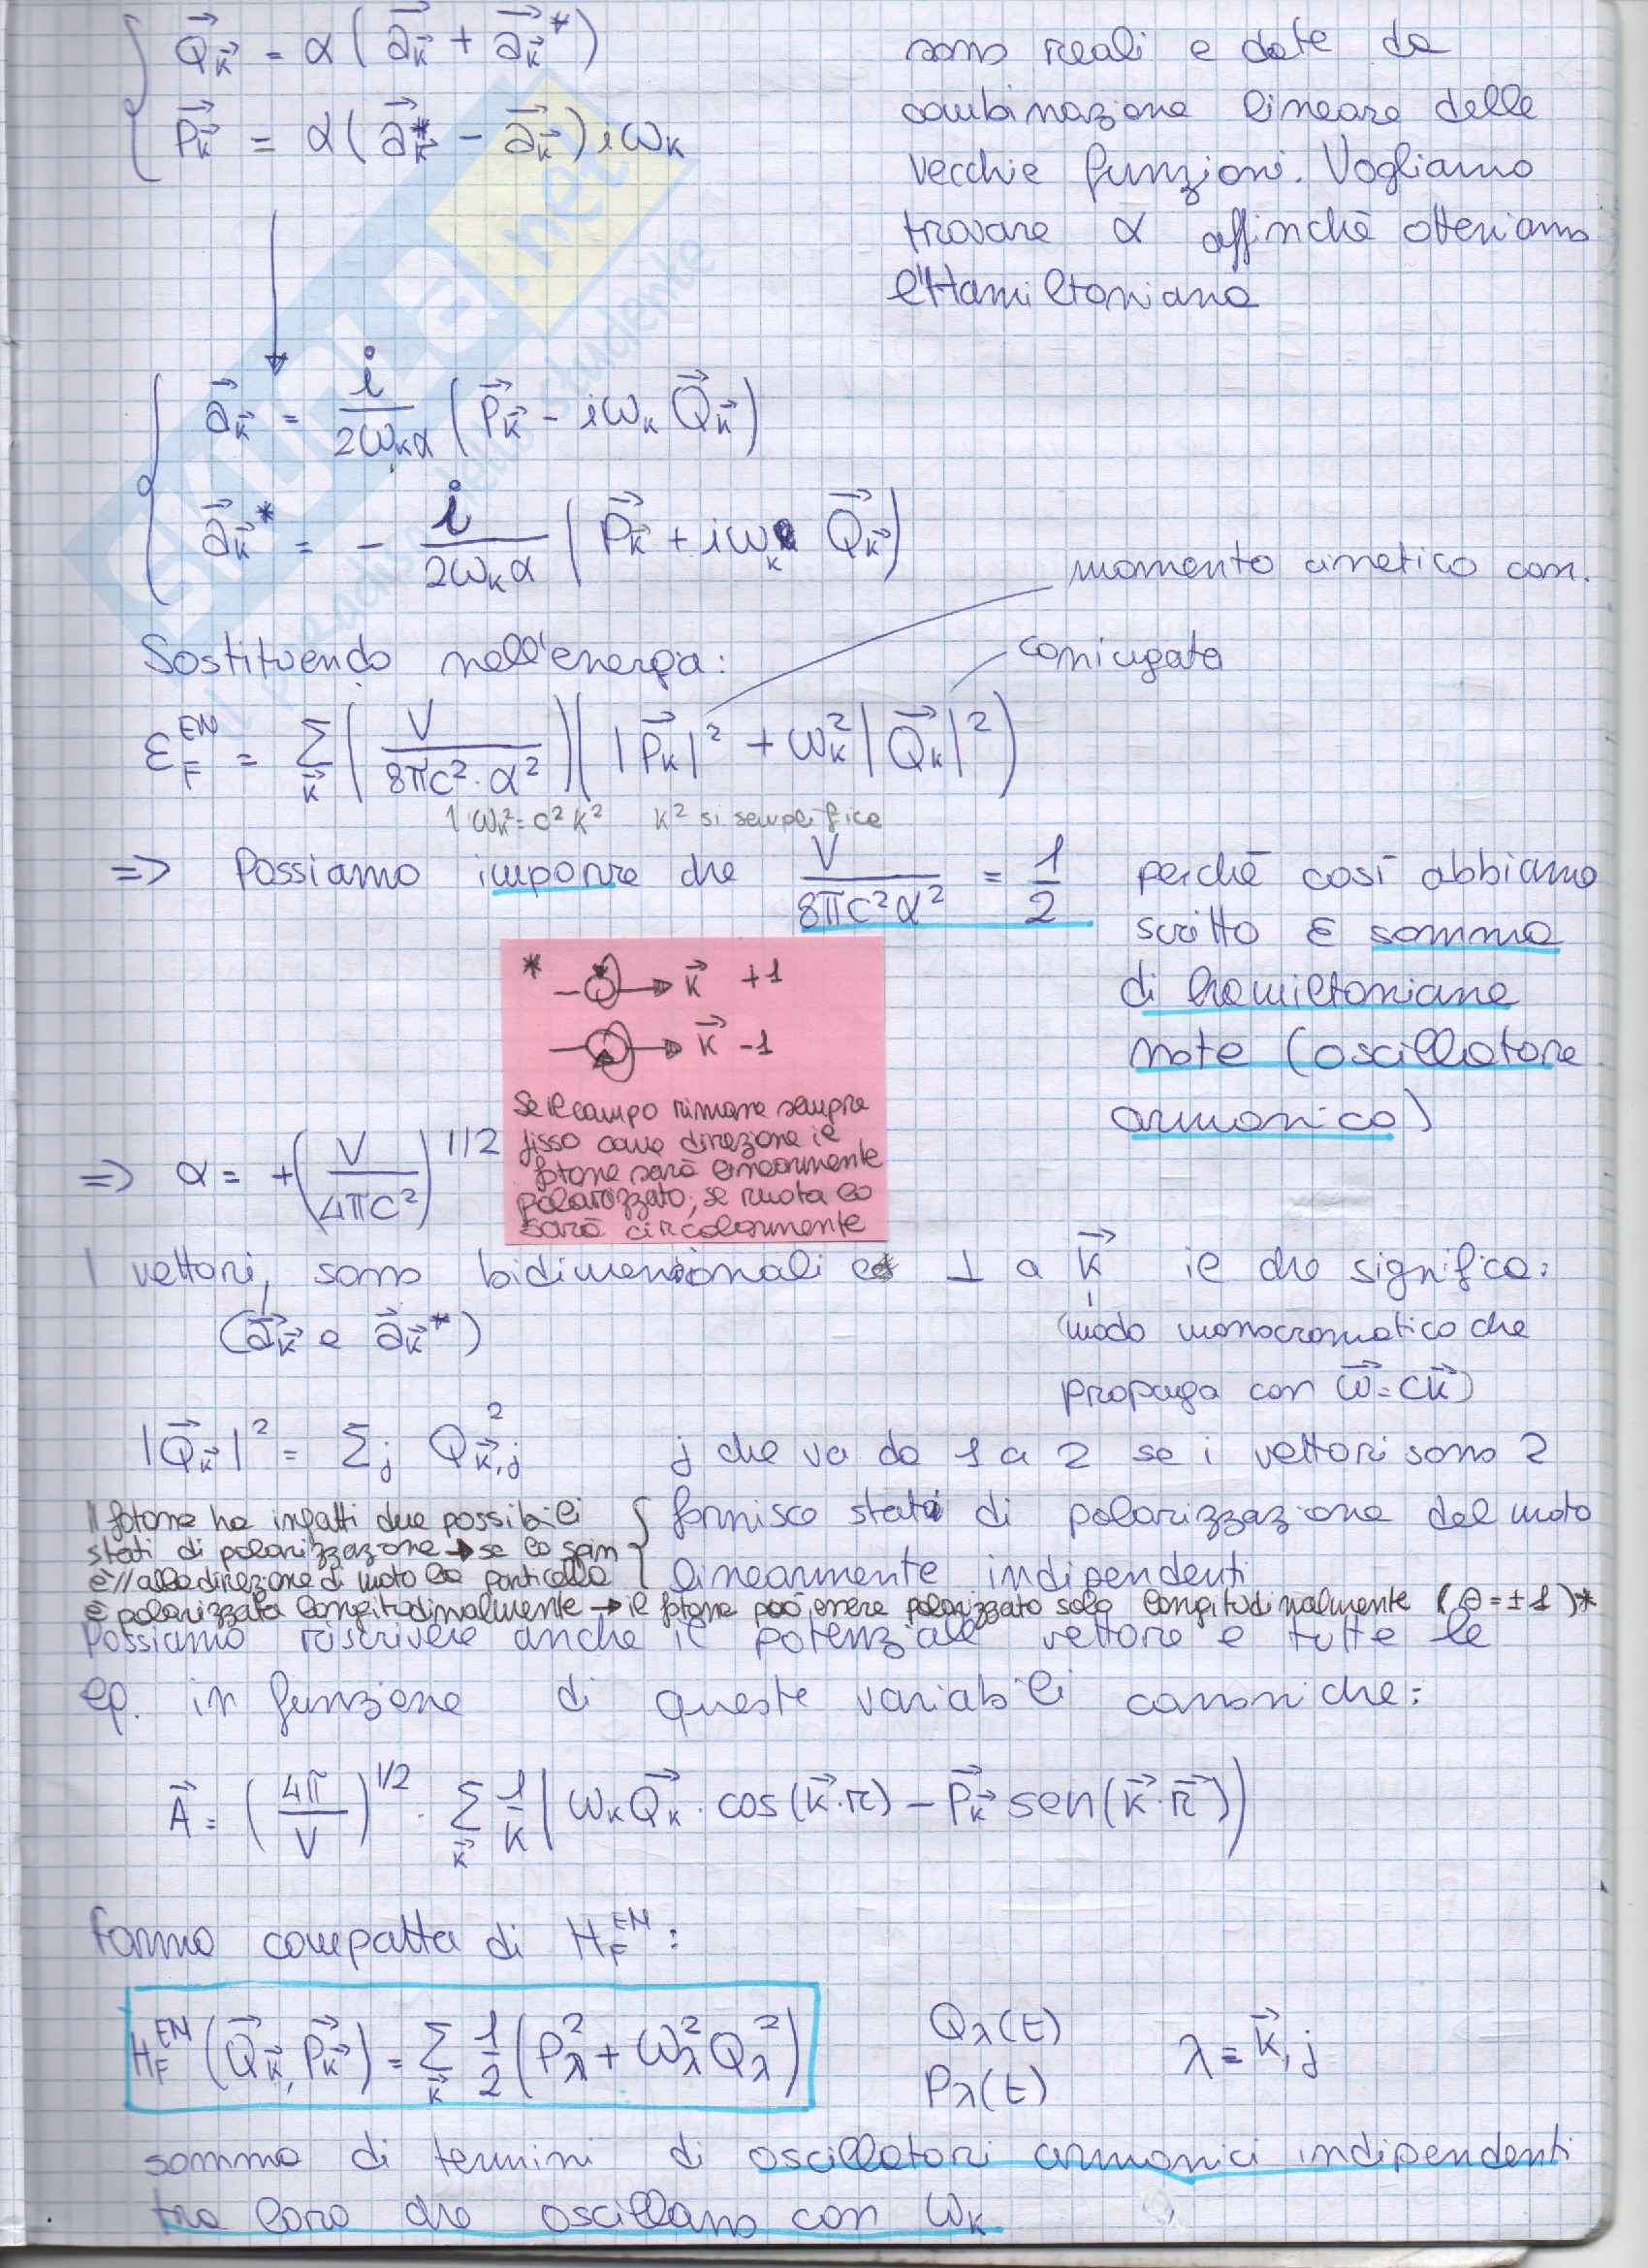 Q⃗k⃗ = α(a⃗k⃗ + a⃗k⃗*)
P⃗k⃗ = α(a⃗k⃗* - a⃗k⃗)iωk
sono reali e date da
combinazione lineare delle
vecchie funzioni. Vogliamo
trovare α affinchè otteniamo
l'Hamiltoniana
a⃗k⃗ = i/2ωkα (P⃗k⃗ - iωk Q⃗k⃗)
a⃗k⃗* = - i/2ωkα (P⃗k⃗ + iωk Q⃗k⃗)
momento cinetico con.
Sostituendo nell'energia:
coniugata
εF^EM = Σk⃗ (V/8πc²·α²)(|P⃗k|² + ωk²|Q⃗k|²)
ωk² = c²k² k² si semplifica
=> Possiamo imporre che V/8πc²α² = 1/2 perchè così abbiamo
scritto ε somma
di hamiltoniane
note (oscillatore
armonico)
* k⃗ +1
k⃗ -1
Se il campo rimane sempre
fisso come direzione il
fotone sarà linearmente
polarizzato, se ruota lo
sarà circolarmente
=> α = +(V/4πc²)^1/2
I vettori, sono bidimensionali e ⊥ a k⃗ il che significa:
(a⃗k⃗ e a⃗k⃗*)
(modo monocromatico che
propaga con ω⃗=ck⃗)
|Q⃗k⃗|² = Σj Q²k⃗,j j che va da 1 a 2 se i vettori sono 2
Il fotone ha infatti due possibili
stati di polarizzazione → se lo spin
è // alla direzione di moto la particella
è polarizzata longitudinalmente → il fotone può essere polarizzato solo longitudinalmente (Θ=±1)*
fornisco stati di polarizzazione del moto
linearmente indipendenti
Possiamo riscrivere anche il potenziale vettore e tutte le
eq. in funzione di queste variabili canoniche:
A⃗ = (4π/V)^1/2 · Σk⃗ 1/k (ωk Q⃗k · cos(k⃗·r) - P⃗k⃗ sen(k⃗·r⃗))
Forma compatta di HF^EM:
HF^EM(Q⃗k⃗, P⃗k⃗) = Σk⃗ 1/2 (Pλ² + ωλ² Qλ²)
Qλ(t)
Pλ(t)
λ = k⃗, j
somma di termini di oscillatori armonici indipendenti
tra loro che oscillano con ωk